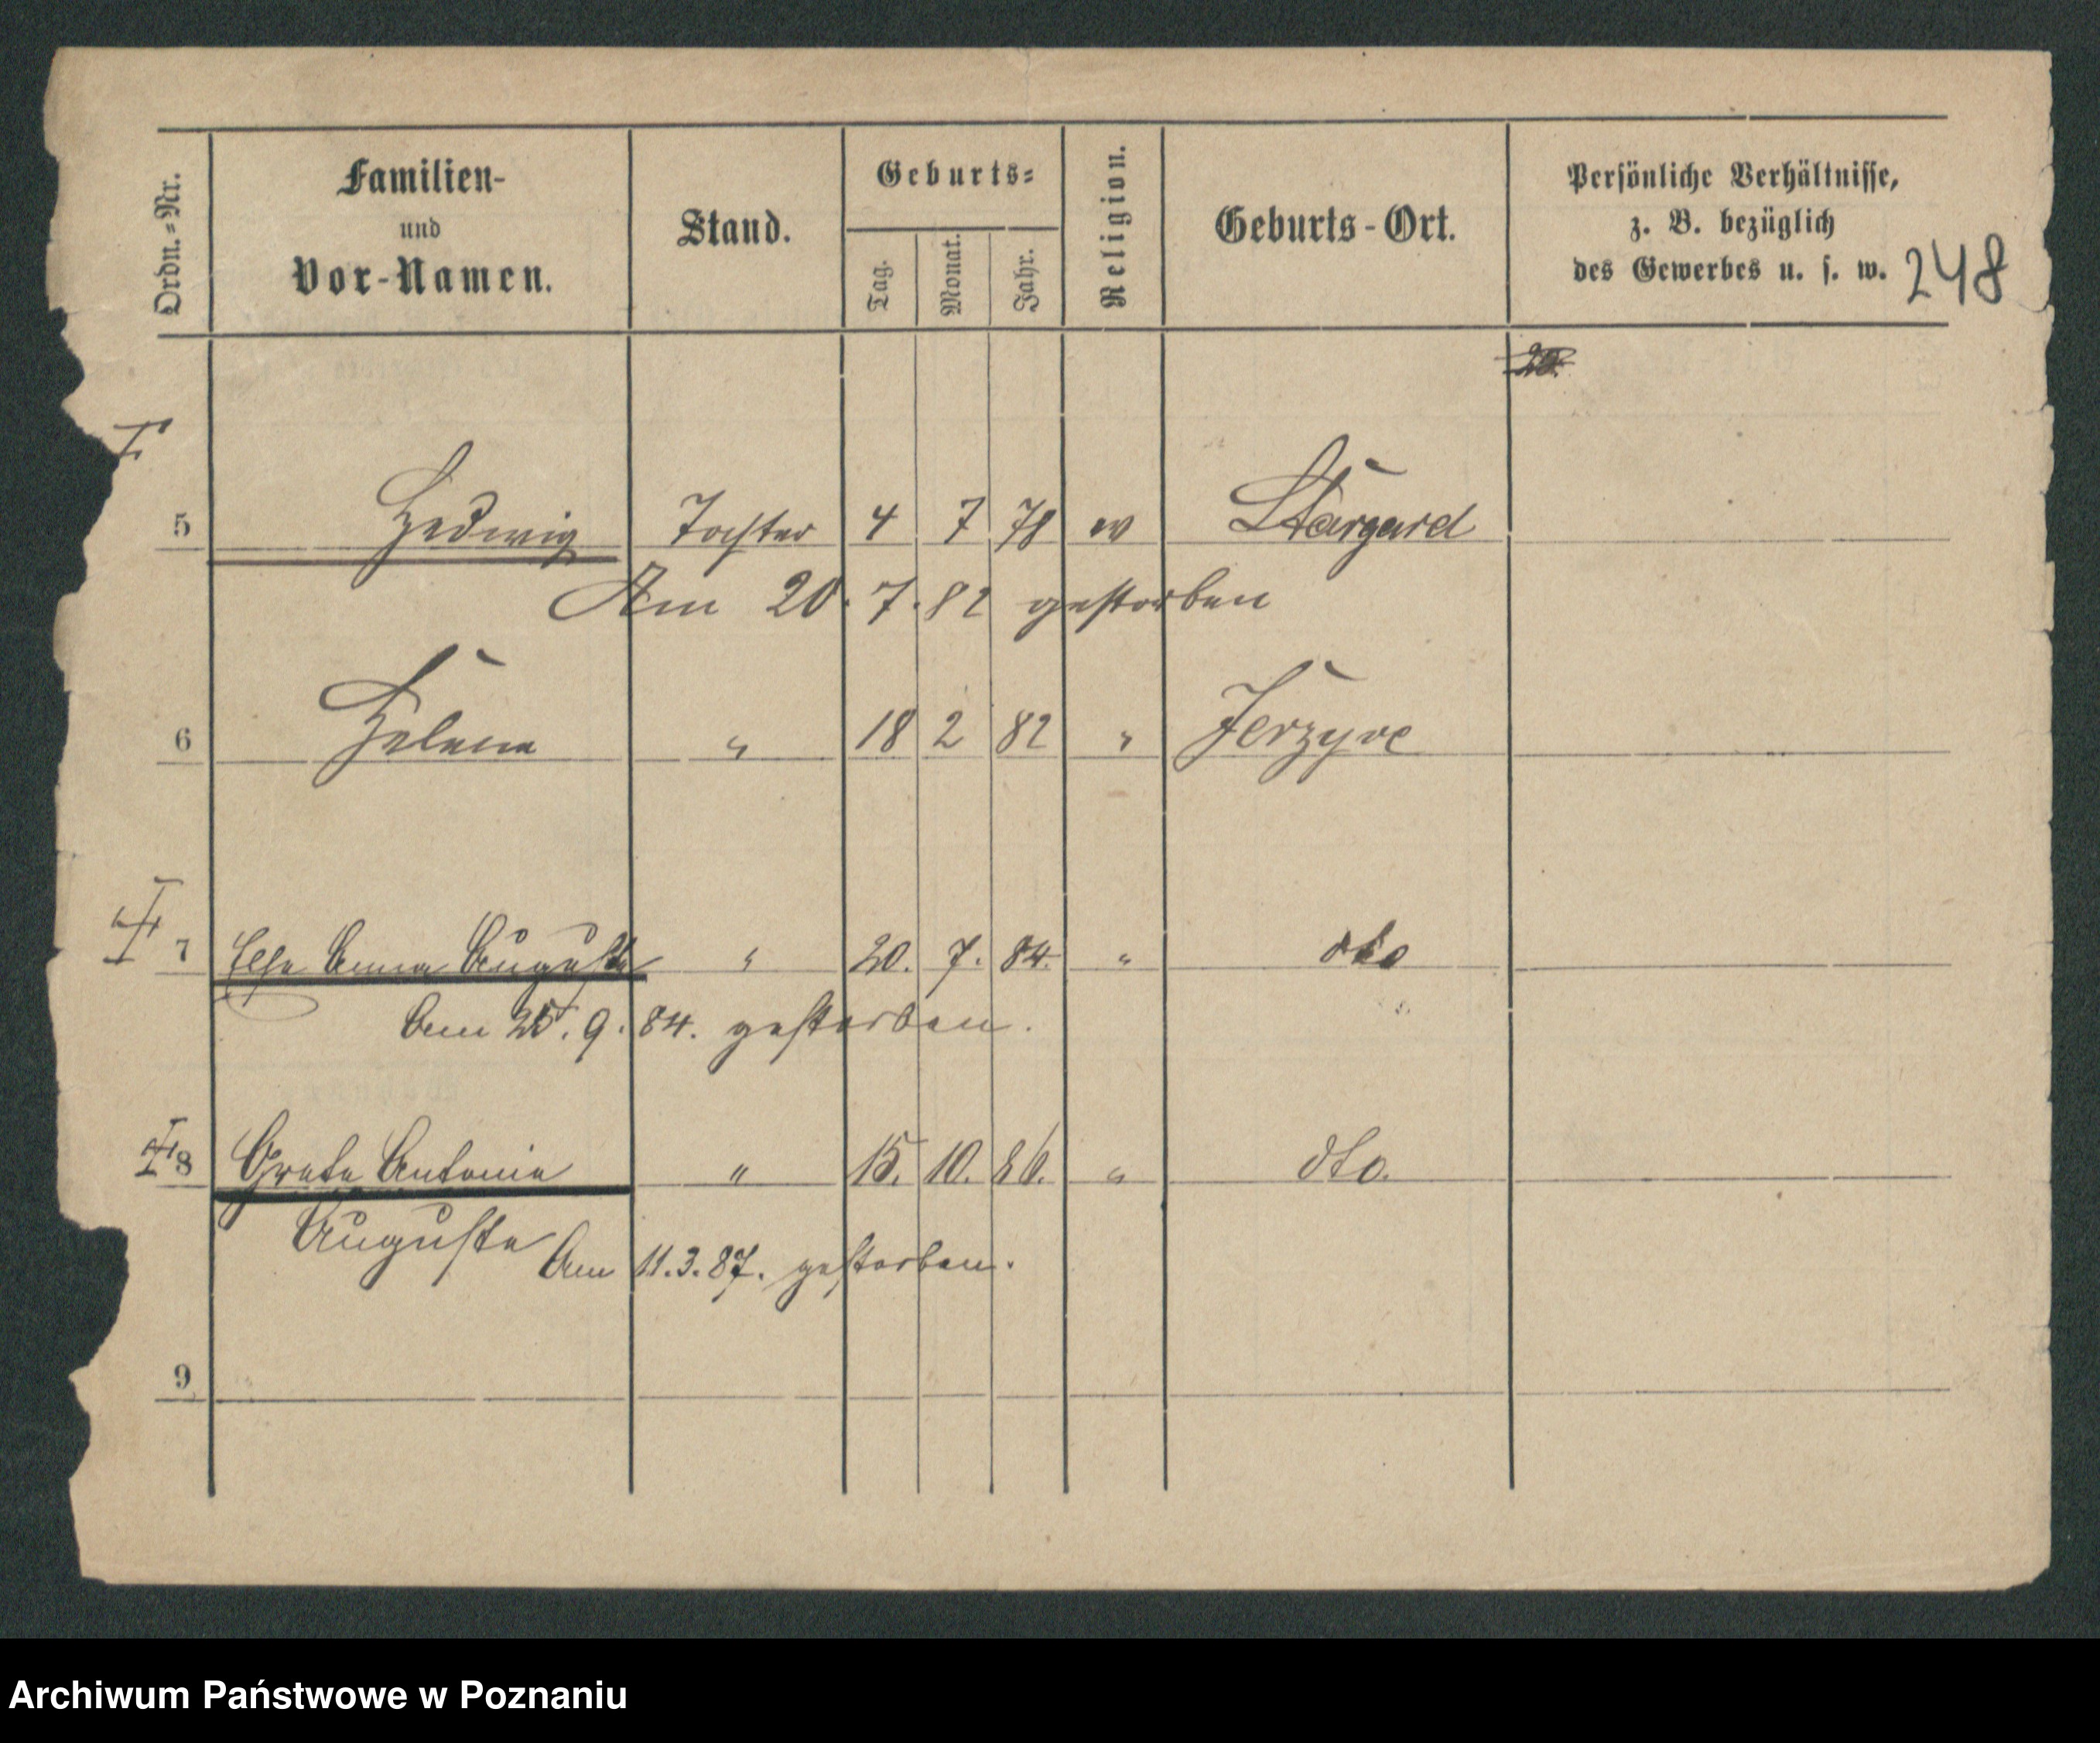 Ordn.-Nr.
Familien-
und
Vor-Namen.
Stand.
Geburts-
Tag.
Monat.
Jahr.
Religion.
Geburts-Ort.
Persönliche Verhältnisse,
z. B. bezüglich
des Gewerbes u. s. w.
248
5 Hedwig Tochter 4 7 78 ev Stargard
Am 20.7.82 gestorben
6 Helene " 18 2 82 " Jerzyce
7 Else Anna Auguste " 20. 7. 84. " dto
Am 25.9.84. gestorben.
8 Grete Antonie " 15. 10. 86. " dto.
Auguste Am 11.3.87. gestorben.
9
Archiwum Państwowe w Poznaniu